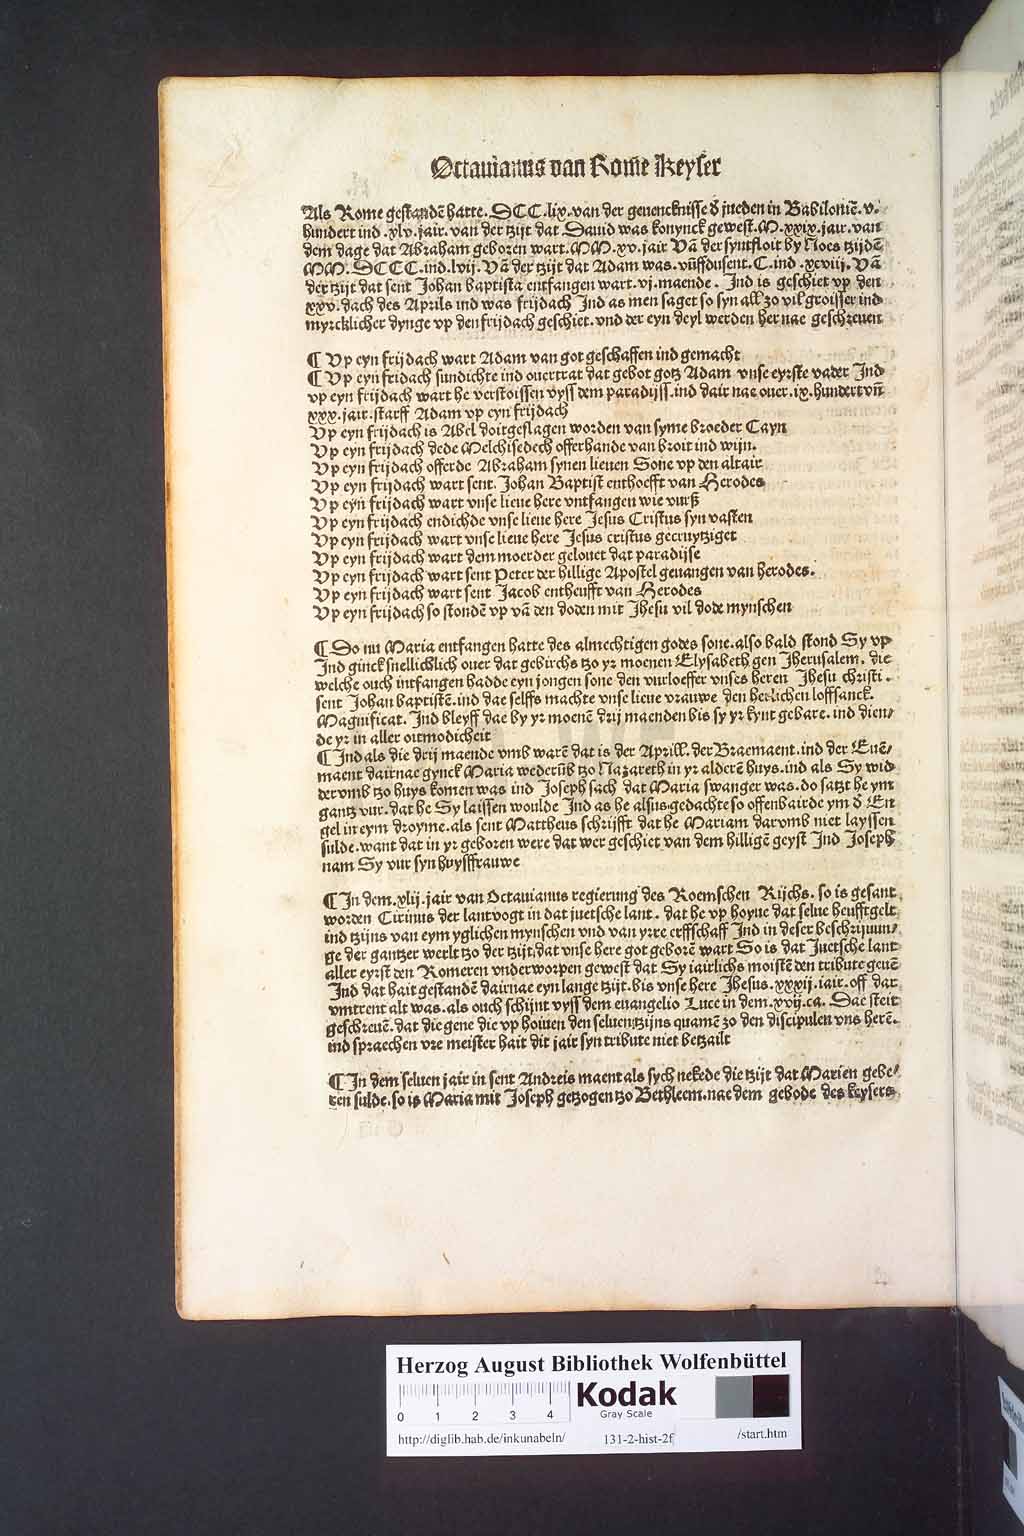 Octauianus van Rom̄e Keyser
Als Rome gestandē hatte. DCC. lix. van der geuencknisse d̓ jueden in Babiloniē. v.
hundert ind .xlv. jair. van der tzijt dat Dauid was konynck gewest. M. xxix. jair. van
dem dage dat Abraham geboren wart. MM. xv. jair Vā der syntfloit by Noes tzijdē
MM. DCCC. ind. lvij. Vā der tzijt dat Adam was. vūffdusent. C. ind .xcviij. Vā
der tzijt dat sent Johan baptista entfangen wart. vj. maende. Ind is geschiet vp den
xxv. dach des Aprils ind was frijdach Ind as men saget so syn all zo vil groisser ind
myrcklicher dynge vp den frijdach geschiet. vnd der eyn deyl werden her nae geschreuen
¶ Vp eyn frijdach wart Adam van got geschaffen ind gemacht
¶ Vp eyn fridach sundichte ind ouertrat dat gebot gotz Adam vnse eyrste vader Ind
vp eyn frijdach wart he verstoissen vyss dem paradijss. ind dair nae ouer. ix. hundert vn̄
xxx. jair. starff Adam vp eyn frijdach
Vp eyn frijdach is Abel doitgeslagen worden van syme broeder Cayn
Vp eyn frijdach dede Melchisedech offerhande van broit ind wijn.
Vp eyn frijdach offerde Abraham synen lieuen Sone vp den altair
Vp eyn frijdach wart sent. Johan Baptist enthoefft van Herodes
Vp eyn frijdach wart vnse lieue here vntfangen wie vurß
Vp eyn frijdach endichde vnse lieue here Jesus Cristus syn vasten
Vp eyn frijdach wart vnse lieue here Jesus cristus gecruytziget
Vp eyn frijdach wart dem moerder gelouet dat paradijse
Vp eyn frijdach wart sent Peter der hillige Apostel geuangen van herodes.
Vp eyn frijdach wart sent Jacob entheufft van Herodes
Vp eyn frijdach so stondē vp vā den doden mit Jhesu vil dode mynschen
¶ Do nu Maria entfangen hatte des almechtigen godes sone. also bald stond Sy vp
Ind ginck snellichlich ouer dat gebirchs tzo yr moenen Elysabeth gen Jherusalem. die
welche ouch intfangen hadde eyn jongen sone den vurloeffer vnses heren Jhesu christi.
sent Johan baptistē. ind dae selffs machte vnse lieue vrauwe den herlichen loffsanck.
Magnificat. Ind bleyff dae by yr moenē drij maenden bis sy yr kynt gebare. ind dien⸗
de yr in aller oitmodicheit
¶ Ind als die drij maende vmb warē dat is der Aprill. der Braemaent. ind der Euē⸗
maent dairnae gynck Maria wederūb tzo Nazareth in yr alderē huys. ind als Sy wid
der vmb tzo huys komen was ind Joseph sach dat Maria swanger was. do satzt he ym
gantz vur. dat he Sy laissen woulde Ind as he alsus gedachte so offenbairde ym d̓ En
gel in eym droyme. als sent Mattheus schrijfft dat he Mariam darvmb niet layssen
sulde. want dat in yr geboren were dat wer geschiet van dem hilligē geyst Ind Joseph
nam Sy vur syn huysffrauwe
¶ In dem. xlij. jair van Octauianus regierung des Roemschen Rijchs. so is gesant
worden Cirinus der lantvogt in dat juetsche lant. dat he vp hoyue dat selue heufftgelt
ind tzijns van eym yglichen mynschen vnd van yrre erffschaff Ind in deser beschrijuun⸗
ge der gantzer werlt tzo der tzijt, dat vnse here got geborē wart So is dat Juetsche lant
aller eyrst den Romeren vnderworpen gewest dat Sy iairlichs moistē den tribute geuē
Ind dat hait gestandē dairnae eyn lange tzijt. bis vnse here Jhesus. xxxij. iair. off dar
vmtrent alt was. als ouch schijnt vyss dem euangelio Luce in dem. xvij. ca. Dae steit
geschreuē. dat die gene die vp hoiuen den seluen tzijns quamē zo den discipulen vns herē.
ind spraechen vre meister hait dit jair syn tribute niet betzailt
¶ In dem seluen jair in sent Andreis maent als sych nekede die tzijt dat Marien gebe⸗
ren sulde. so is Maria mit Joseph getzogen tzo Bethleem. nae dem gebode des keysers
Herzog August Bibliothek Wolfenbüttel
0 1 2 3 4
Kodak
Gray Scale
http://diglib.hab.de/inkunabeln/ 131-2-hist-2f /start.htm